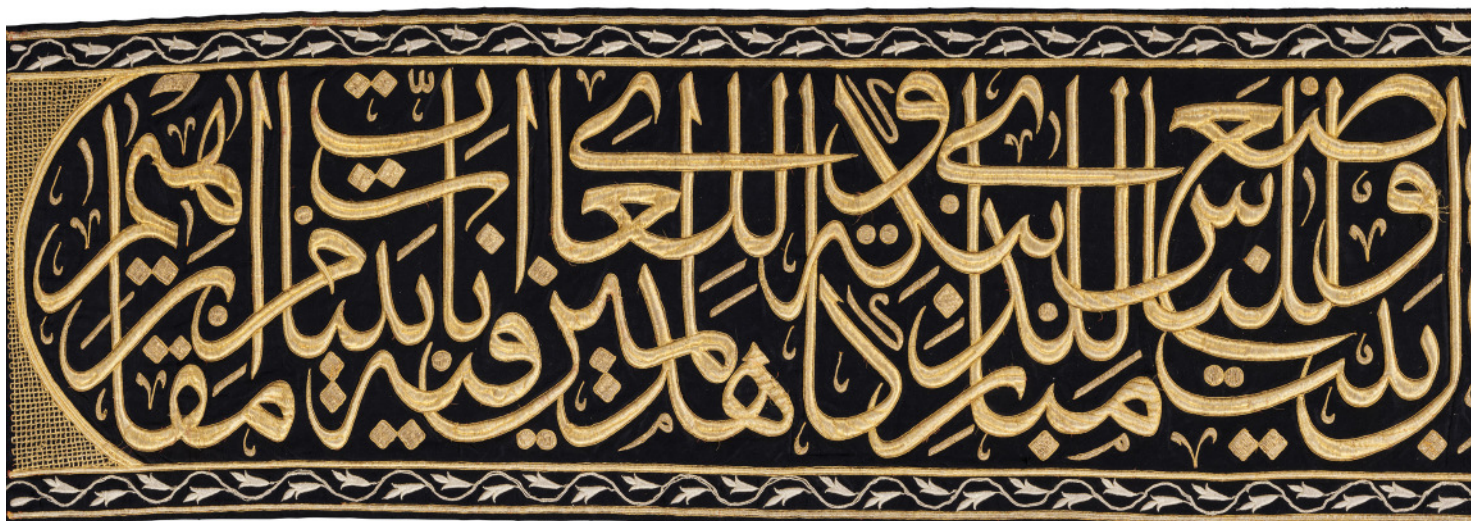 بيت وضع للناس للذي ببكة مباركا وهدى للعالمين فيه آيات بينات مقام إبراهيم